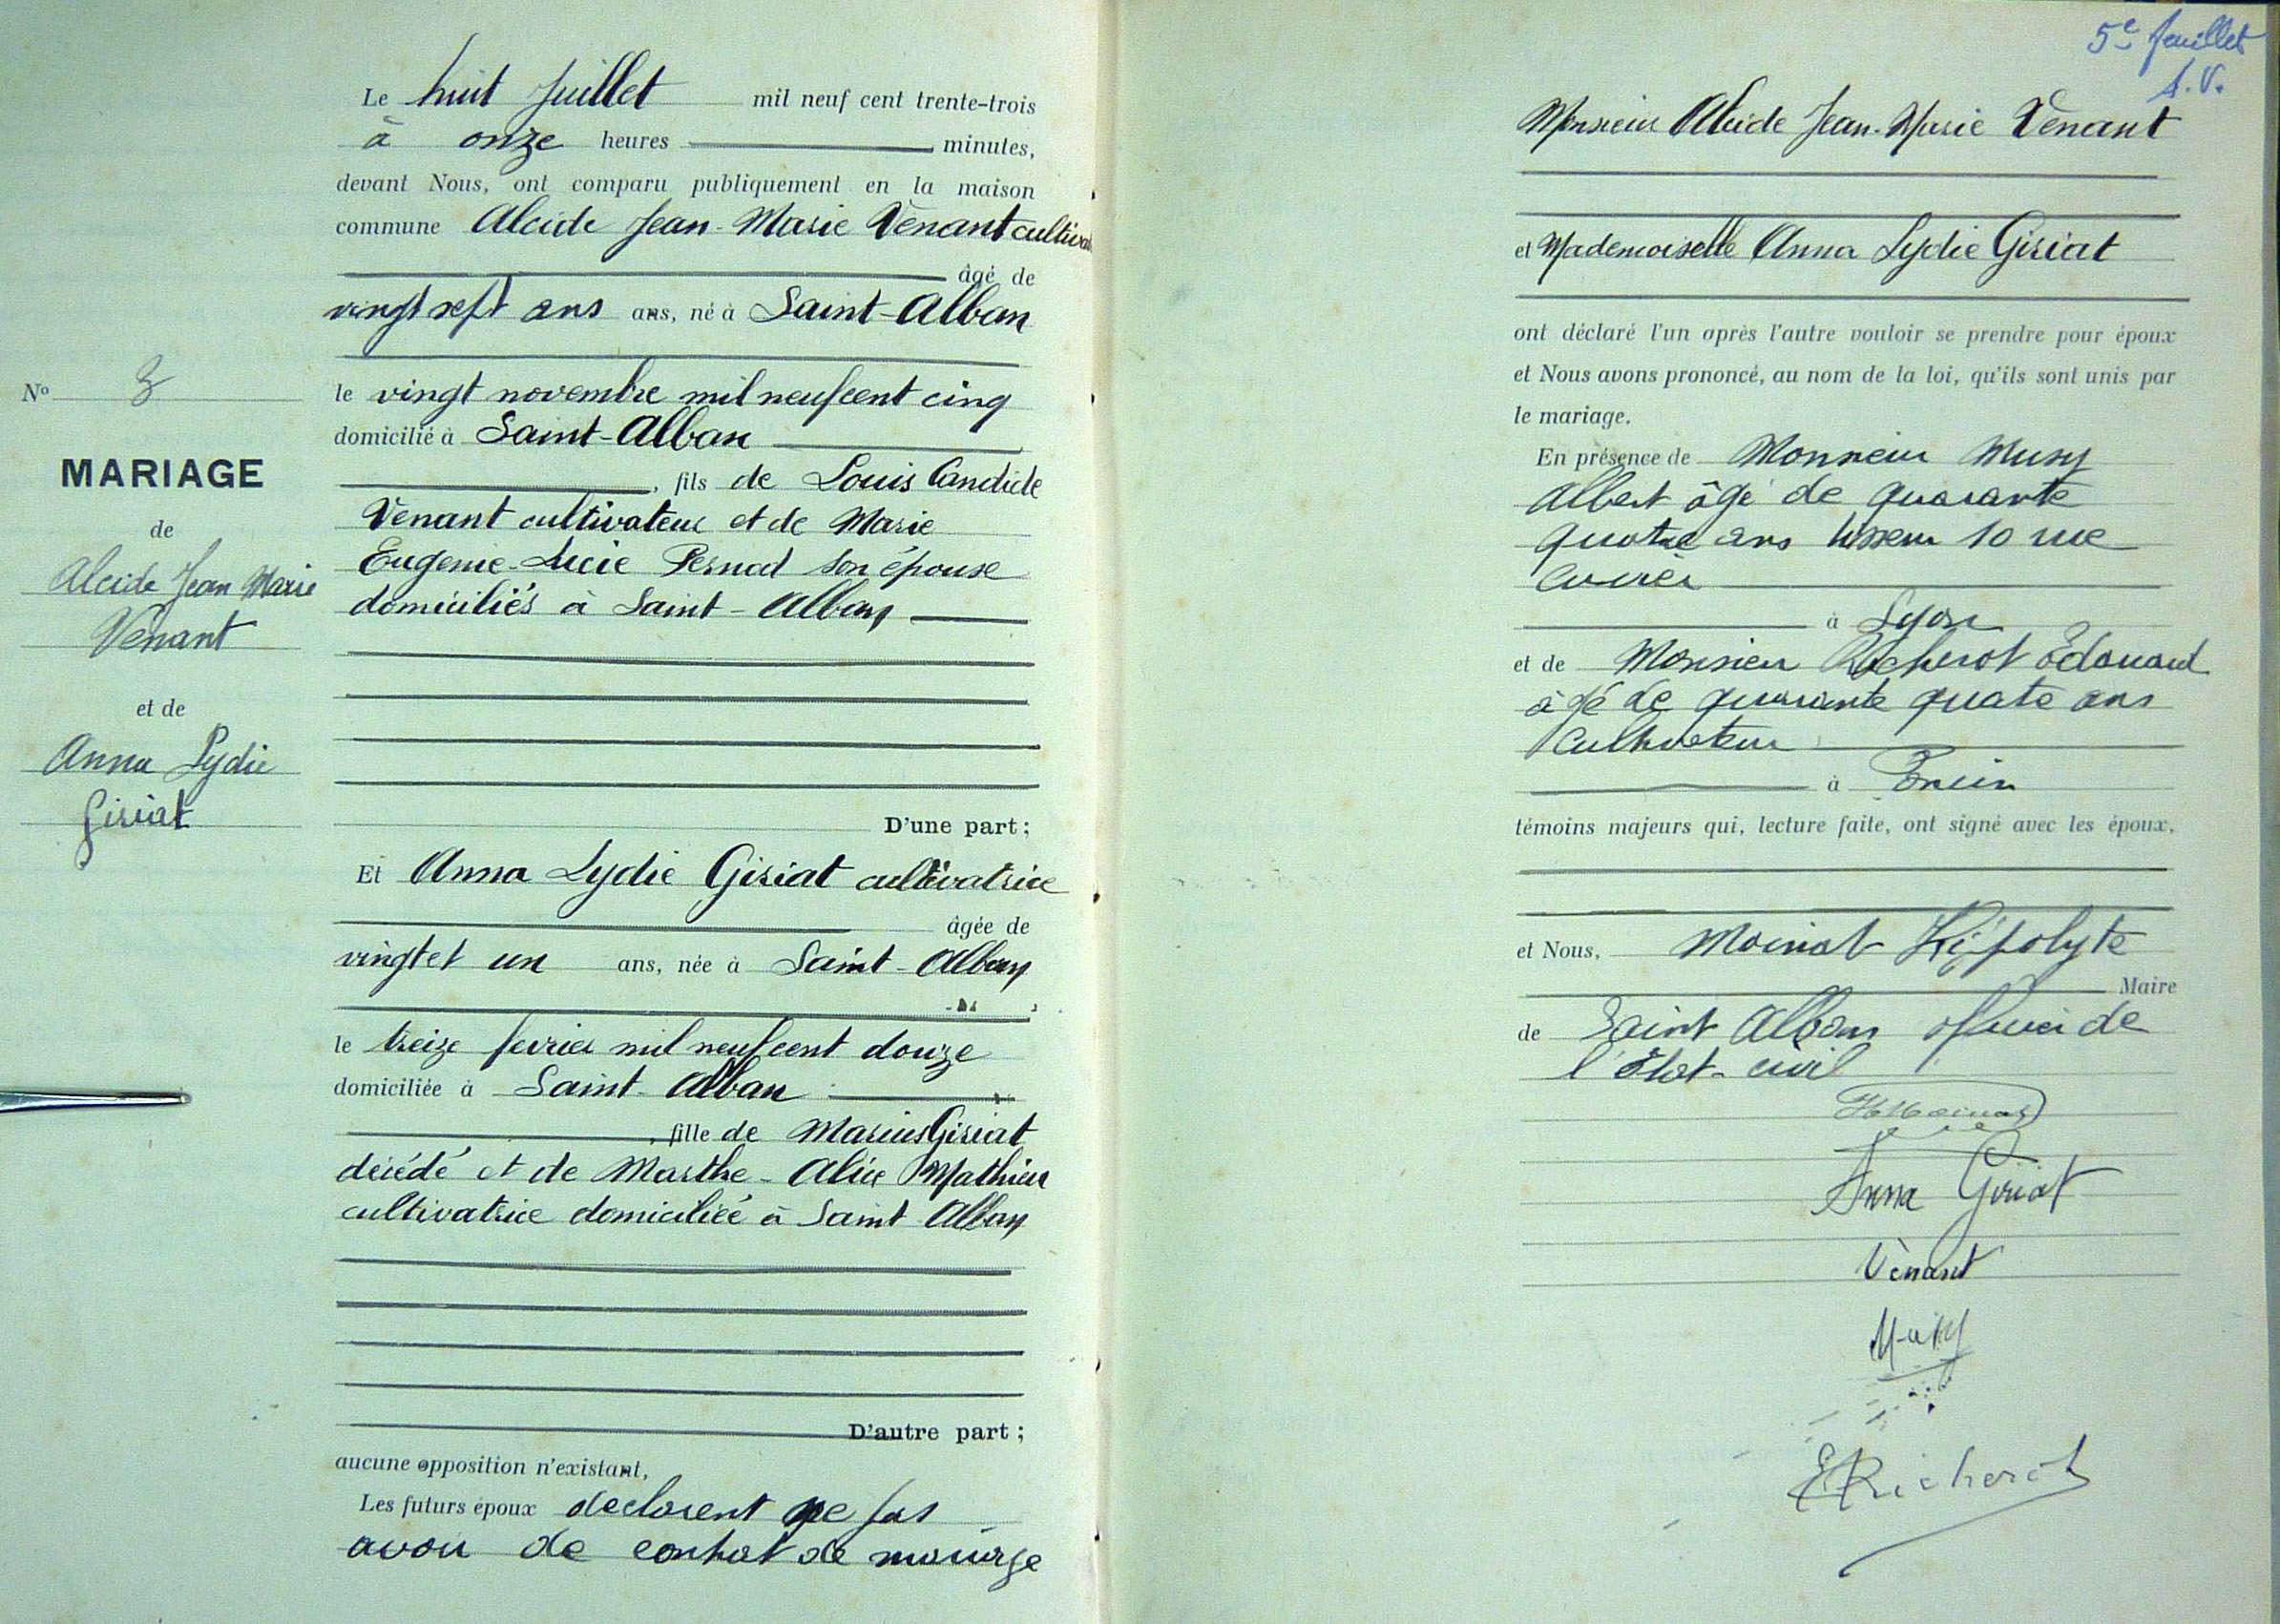 Le huit Juillet mil neuf cent trente-trois
à onze heures minutes,
devant Nous, ont comparu publiquement en la maison
commune Alcide Jean-Marie Vènant
âgé de
vingt sept ans ans, né à Saint-Alban
le vingt novembre mil neuf cent cinq
domicilié à Saint-Alban
, fils de Louis Candide
Vènant cultivateur et de Marie
Eugenie-Lucie Pernod son épouse
domiciliés à Saint-Alban
D'une part ;
Et Anna Lydie Giriat cultivatrice
âgée de
vingt et un ans, née à Saint-Alban
le treize fevrier mil neuf cent douze
domiciliée à Saint-Alban
, fille de Marius Giriat
décédé et de Marthe-Alice Mathieu
cultivatrice domiciliée à Saint Alban
D'autre part ;
aucune opposition n'existant,
Les futurs époux declarent ne pas
avoir de contrat de mariage
No 3
MARIAGE
de
Alcide Jean Marie
Vènant
et de
Anna Lydie
Giriat
5e feuillet
Monsieur Alcide Jean-Marie Vènant
et Mademoiselle Anna Lydie Giriat
ont déclaré l'un après l'autre vouloir se prendre pour époux
et Nous avons prononcé, au nom de la loi, qu'ils sont unis par
le mariage.
En présence de Monsieur Musy
Albert âgé de quarante
quatre ans 10 rue
à Lyon
et de Monsieur Richerot Edouard
âgé de quarante quatre ans
cultivateur
à
témoins majeurs qui, lecture faite, ont signé avec les époux,
et Nous, Moinat Hippolyte
Maire
de Saint Alban officier de
l'Etat-civil
H Moinat
Anna Giriat
Vènant
Musy
E Richerot